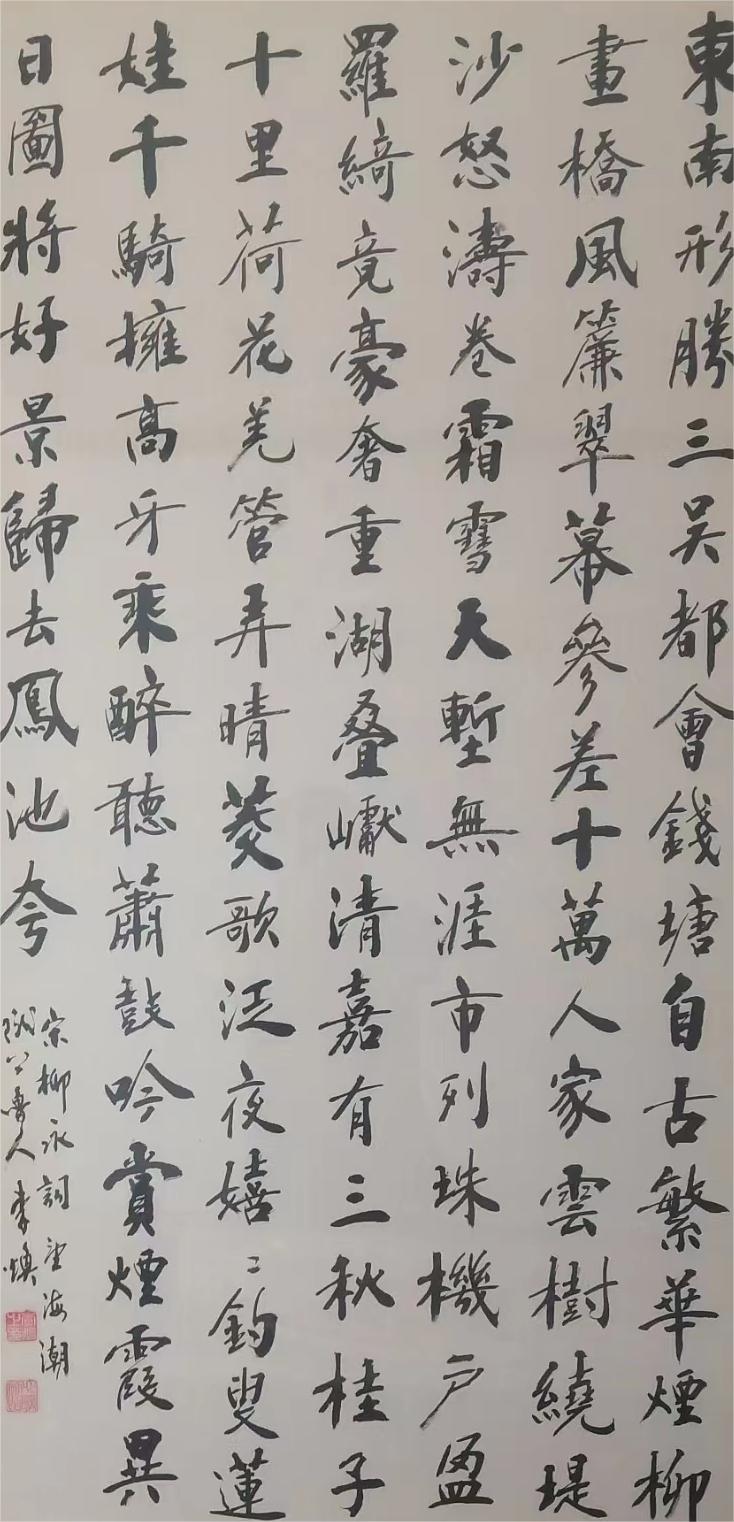 東南形勝三吴都會錢塘自古繁華煙柳
畫橋風簾翠幕參差十萬人家雲樹繞堤
沙怒濤卷霜雪天塹無涯市列珠機户盈
羅綺竟豪奢重湖叠巘清嘉有三秋桂子
十里荷花羌管弄晴菱歌泛夜嬉〻釣叟蓮
娃千騎擁高牙乘醉聽蕭鼓吟賞煙霞異
日圖將好景歸去鳳池夸
宋柳永詞望海潮
魯人李焕